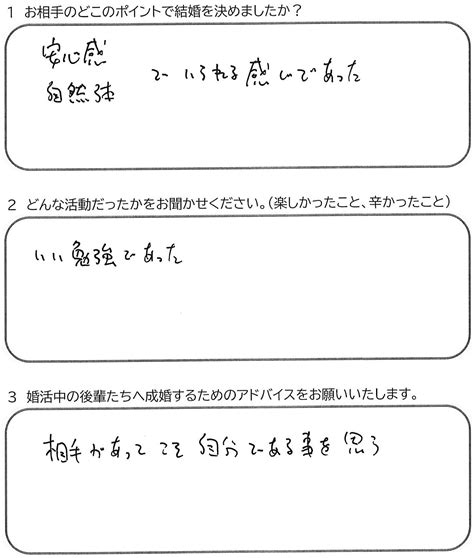 1 お相手のどこのポイントで結婚を決めましたか？
安心感
自然体 でいられる感じであった
2 どんな活動だったかをお聞かせください。（楽しかったこと、辛かったこと）
いい勉強であった
3 婚活中の後輩たちへ成婚するためのアドバイスをお願いいたします。
相手があってこそ自分である事を思う